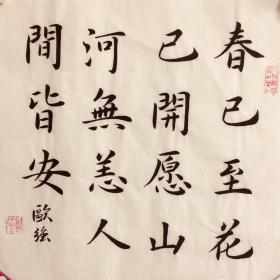 春已至花
已開愿山
河無恙人
間皆安
歐強